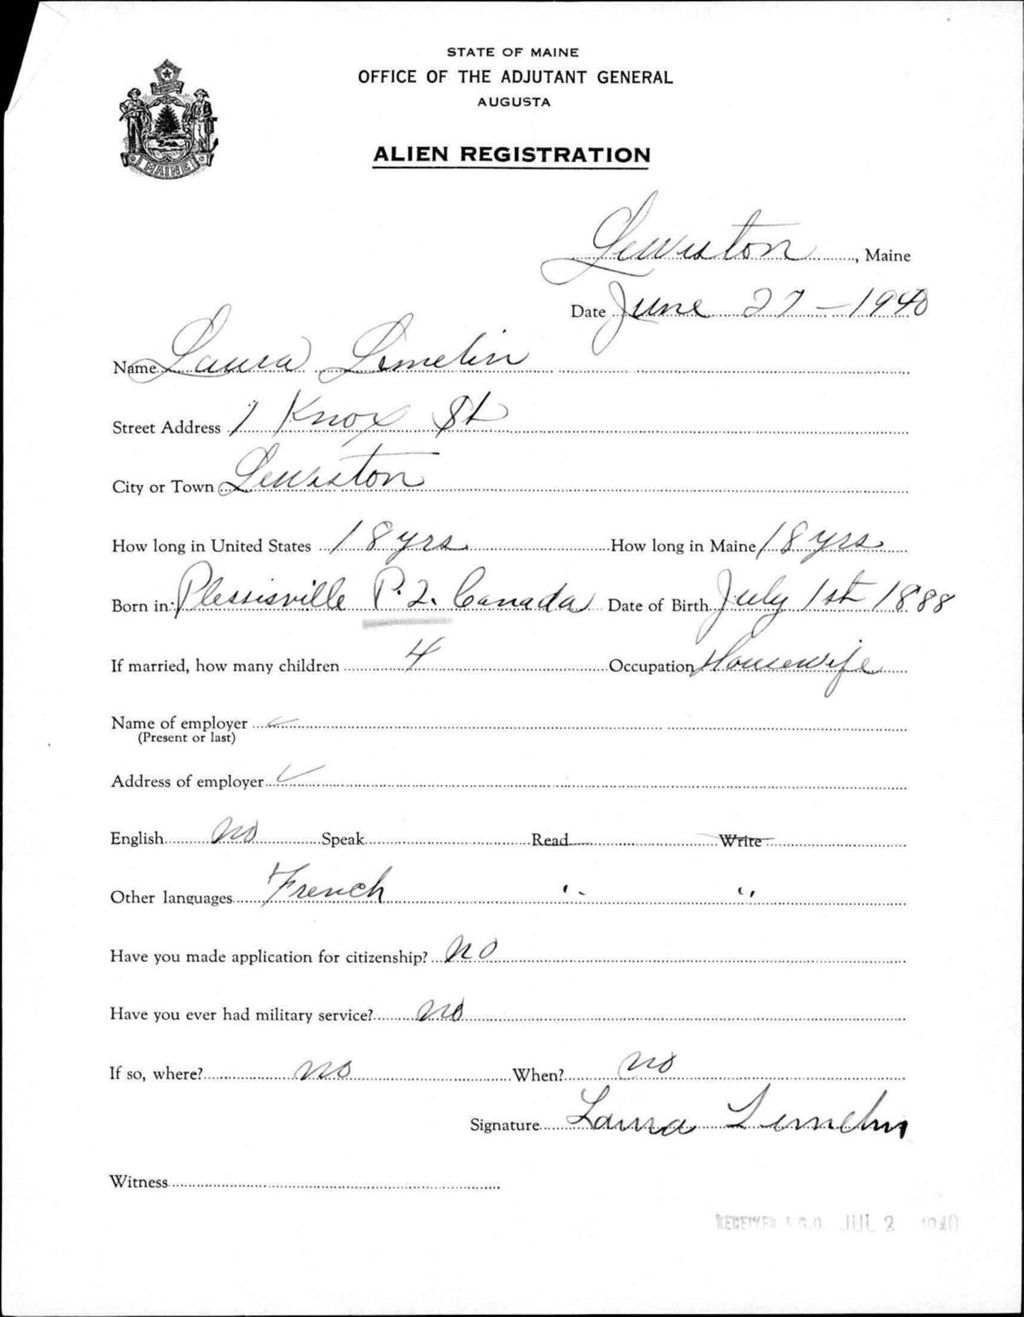 STATE OF MAINE
OFFICE OF THE ADJUTANT GENERAL
AUGUSTA
ALIEN REGISTRATION
MAINE
Lewiston, Maine
Date June 27-1940
Name Laura Lemelin
Street Address 1 Knox St
City or Town Lewiston
How long in United States 18 yrs How long in Maine 18 yrs
Born in Plessisville P.Q. Canada Date of Birth July 1st 1888
If married, how many children 4 Occupation Housewife
Name of employer
(Present or last)
Address of employer
English no Speak Read Write
Other languages French " "
Have you made application for citizenship? no
Have you ever had military service? no
If so, where? no When? no
Signature Laura Lemelin
Witness
RECEIVED A.G.O. JUL 2 1940